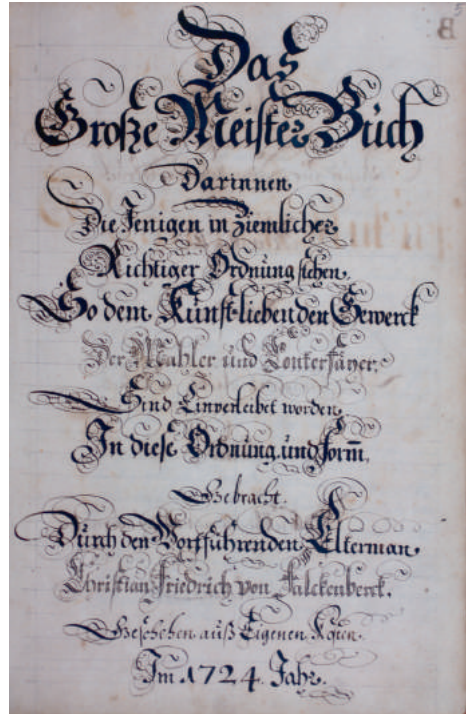 Das
Große Meister Buch
Darinnen
Die Jenigen in Ziemlicher
Richtiger Ordnung stehen,
So dem Kunst-liebenden Gewerck
Der Mahler und Conterfäyer,
Sind Einverleibet worden
In diese Ordnung und form̄,
Gebracht.
Durch den Wortführenden Elterman,
Christian Friedrich von Falckenberck.
Geschehen auß Eigenen Kosten.
Im 1724. Jahr.